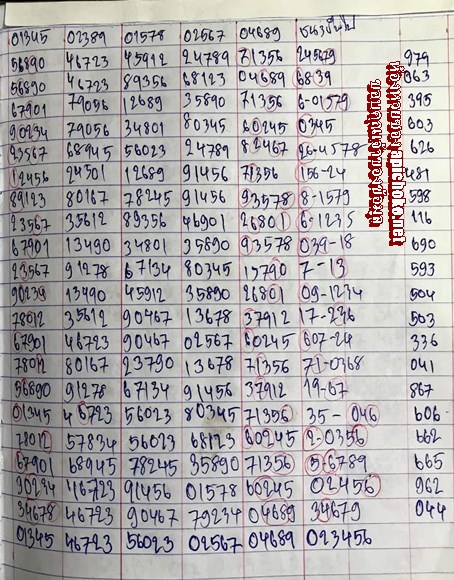 01345 02389 01578 02567 04689 ชนวันไป
56890 46723 45912 24789 71356 24569 979
56890 46723 89356 68123 04689 6839 063
67901 79056 12689 35890 71356 6-01579 395
90234 79056 34801 80345 60245 0345 603
23567 68945 56023 24789 82467 26-4578 626
12456 24501 12689 91456 71356 156-24 481
89123 80167 78245 91456 93578 8-1579 598
23567 35612 89356 46901 26801 6-1235 116
67901 13490 34801 35890 93578 039-18 690
23567 91278 67134 80345 15790 7-13 593
90239 13490 45912 35890 26801 09-1234 504
78012 35612 90467 13678 37912 17-236 503
67901 46723 90467 02567 60245 607-24 336
78012 80167 23790 13678 71356 71-0368 041
56890 91278 67134 91456 37912 19-67 867
01345 46723 56023 80345 71356 35-046 606
78012 57834 56023 68123 60245 2-0356 662
67901 68945 78245 35890 71356 5-6789 665
90234 46723 91456 01578 60245 02456 962
34678 46723 90467 79234 04689 34679 044
01345 46723 56023 02567 04689 023456